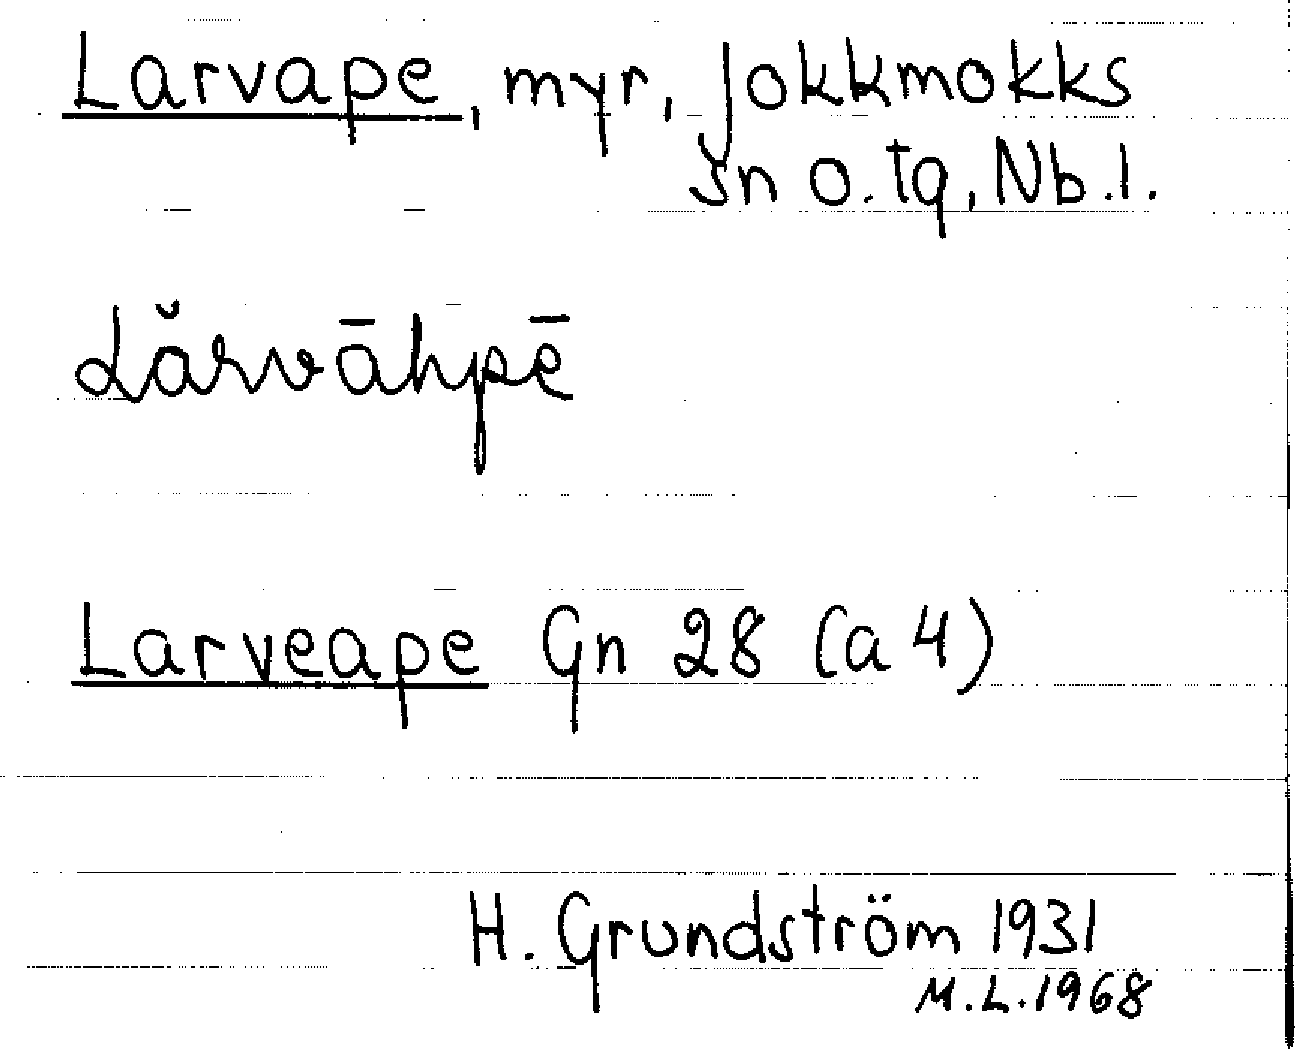 Larvape, myr, Jokkmokks
sn o. tg, Nb.l.
Lărvāhpē
Larveape Gn 28 (a 4)
H. Grundström 1931
M.L. 1968